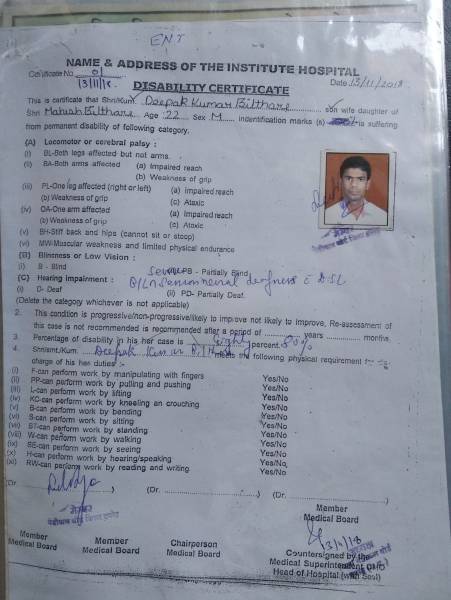 ENT
NAME & ADDRESS OF THE INSTITUTE HOSPITAL
Certificate No. 01
13/11/18. Date 13/11/2018
DISABILITY CERTIFICATE
This is certificate that Shri/Kum. Deepak Kumar Bilthare son wife daughter of
Shri Mahesh Bilthare Age 22 Sex M indentification marks (s) is suffering
from permanent disability of following category.
(A) Locomotor or cerebral palsy :
(i) BL-Both legs affected but not arms.
(ii) BA-Both arms affected (a) Impaired reach
(b) Weakness of grip
(iii) PL-One leg affected (right or left) (a) Impaired reach
(b) Weakness of grip (c) Ataxic
(iv) OA-One arm affected (a) Impaired reach
(b) Weakness of grip (c) Ataxic
(v) BH-Stiff back and hips (cannot sit or stoop)
(vi) MW-Muscular weakness and limited physical endurance
(B) Blindness or Low Vision :
(i) B - Blind PB - Partially Blind
Severe
(C) Hearing impairment : B/L Sensorineural deafness
(i) D- Deaf (ii) PD- Partially Deaf.
(Delete the category whichever is not applicable)
2. This condition is progressive/non-progressive/likely to improve not likely to improve, Re-assessment of
this case is not recommended is recommended after a period of years months.
3. Percentage of disability in his her case is Eighty percent. 80%
4. Shri/smt./Kum. Deepak Kumar the following physical requirement
charge of his her duties :-
(i) F-can perform work by manipulating with fingers Yes/No
(ii) PP-can perform work by pulling and pushing Yes/No
(iii) L-can perform work by lifting Yes/No
(iv) KC-can perform work by kneeling an crouching Yes/No
(v) B-can perform work by bending Yes/No
(vi) S-can perform work by sitting Yes/No
(vii) ST-can perform work by standing Yes/No
(viii) W-can perform work by walking Yes/No
(ix) SE-can perform work by seeing Yes/No
(x) H-can perform work by hearing/speaking Yes/No
(xi) RW-can perform work by reading and writing Yes/No
(Dr. ) (Dr. ) (Dr. )
Member
Medical Board
Member
Medical Board
Member
Medical Board
Chairperson
Medical Board
Countersigned by the
Medical Superintendent
Head of Hospital (with Seal)